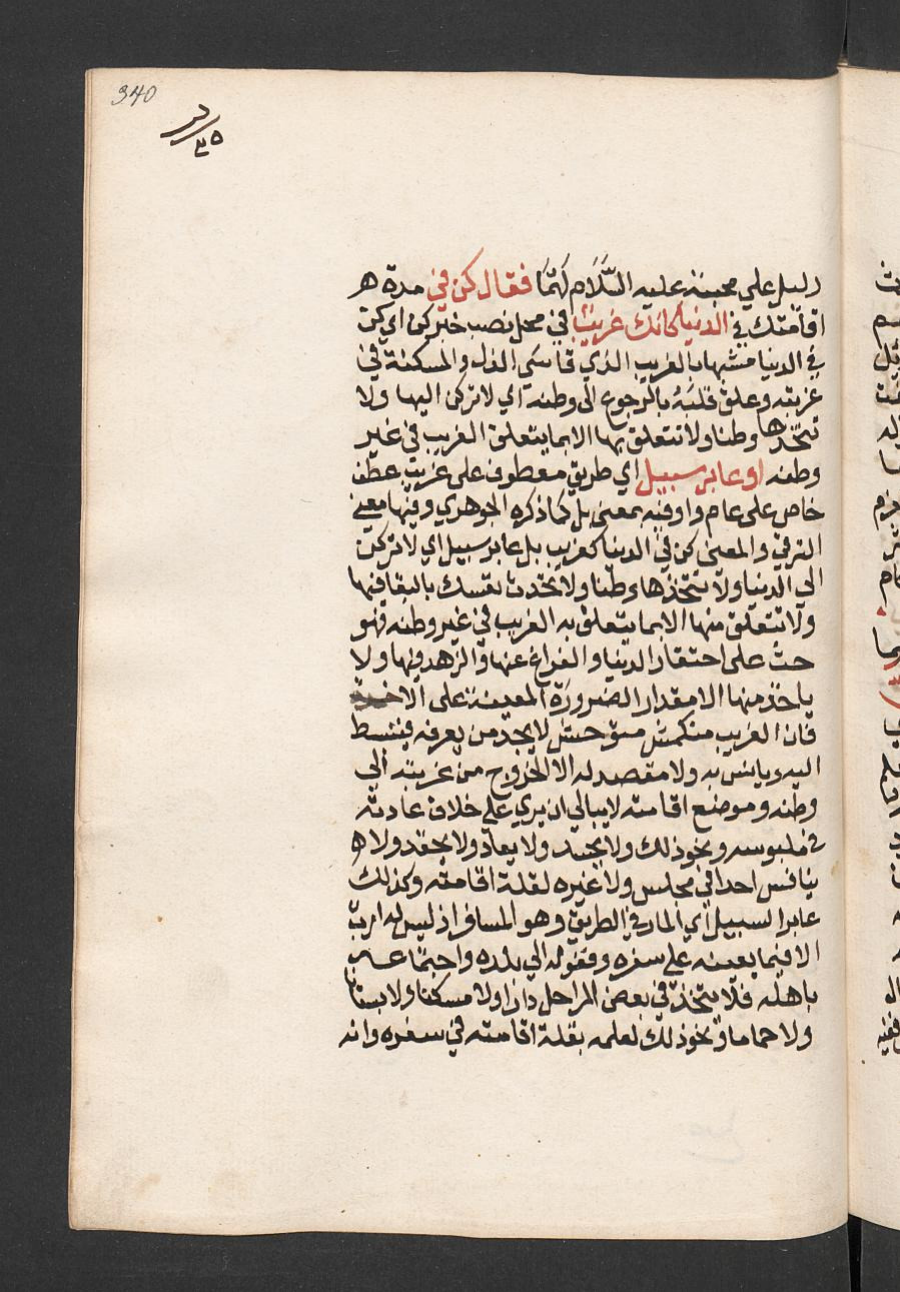 340
٣٥
دليل علي محبته عليه السَّلَام لَهُمَا فقال كن في مدة هـ
اقامتك في الدنيا كانك غريب في محل نصب خبر كن اي كن
في الدنيا مشبها بالغريب الذي قاسي الذل والمسكنة في
غربته وعلق قلبه بالرجوع الى وطنه اي لا تركن اليها ولا
تتخذها وطنا ولا تتعلق بها الا بما يتعلق الغريب في غير
وطنه او عابر سبيل اي طريق معطوف على غريب عطف
خاص على عام واو فيه بمعنى بل كما ذكره الجوهري وفيها معني
الترقي والمعنى كن في الدنيا كغريب بل عابر سبيل اي لا تركن
الى الدنيا ولا تتخذها وطنا ولا تحدث نفسك بالبقا فيها
ولا تتعلق منها الا بما يتعلق به الغريب في غير وطنه فهو
حث على احتقار الدنيا والفراغ عنها والزهد فيها ولا
ياخذ منها الا مقدار الضرورة المعينة على الاخرة
فان الغريب منكمش متوحش لا يجد من يعرفه فينبسط
اليه ويانس به ولا مقصد له الا الخروج من غربته الي
وطنه وموضع اقامته لا يبالي ان يري علي خلاف عادته
في ملبوسه ونحو ذلك ولا يحسد ولا يعاد ولا يحقد ولا هـ
ينافس احدا في مجلس ولا غيره لقلة اقامته وكذلك
عابر السبيل اي المار في الطريق وهو المسافر اذ ليس له ارب
الا فيما يعينه علي سفره وقفوله الي بلده واجتماعه
باهله فلا يتخذ في بعض المراحل دارا ولا مسكنا ولا بستانا
ولا حماما ونحو ذلك لعلمه بقلة اقامته في سفره وانه